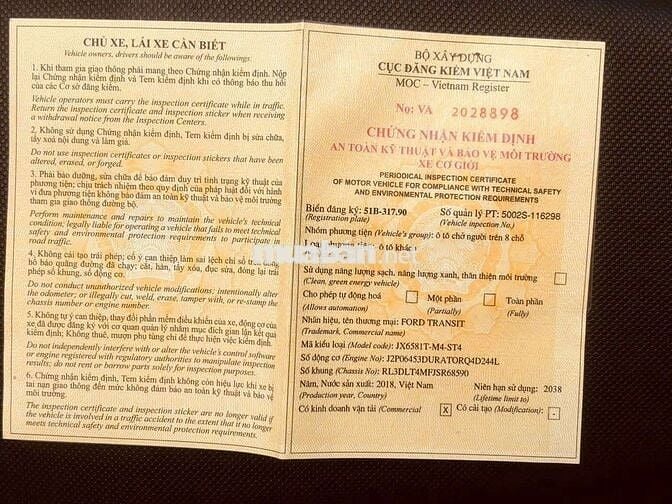 CHỦ XE, LÁI XE CẦN BIẾT
Vehicle owners, drivers should be aware of the followings:
1. Khi tham gia giao thông phải mang theo Chứng nhận kiểm định. Nộp
lại Chứng nhận kiểm định và Tem kiểm định khi có thông báo thu hồi
của các Cơ sở đăng kiểm.
Vehicle operators must carry the inspection certificate while in traffic.
Return the inspection certificate and inspection sticker when receiving
a withdrawal notice from the Inspection Centers.
2. Không sử dụng Chứng nhận kiểm định, Tem kiểm định bị sửa chữa,
tẩy xoá nội dung và làm giả.
Do not use inspection certificates or inspection stickers that have been
altered, erased, or forged.
3. Phải bảo dưỡng, sửa chữa để bảo đảm duy trì tình trạng kỹ thuật của
phương tiện; chịu trách nhiệm theo quy định của pháp luật đối với hành
vi đưa phương tiện không bảo đảm an toàn kỹ thuật và bảo vệ môi trường
tham gia giao thông.
Perform maintenance and repairs to maintain the vehicle's technical
condition; legally liable for operating a vehicle that fails to meet technical
safety and environmental protection requirements to participate in
road traffic.
4. Không cải tạo trái phép; cố ý can thiệp làm sai lệch chỉ số trên đồng
hồ báo quãng đường đã chạy; cắt, hàn, tẩy xóa, đục sửa, đóng lại trái
phép số khung, số động cơ.
Do not conduct unauthorized vehicle modifications; intentionally alter
the odometer; or illegally cut, weld, erase, tamper with, or re-stamp the
chassis number or engine number.
5. Không tự ý can thiệp, thay đổi phần mềm điều khiển của xe, động cơ của
xe đã được đăng ký với cơ quan quản lý nhằm mục đích gian lận kết quả
kiểm định; Không thuê, mượn phụ tùng chỉ để thực hiện việc kiểm định.
Do not independently interfere with or alter the vehicle's control software
or engine registered with regulatory authorities to manipulate inspection
results; do not rent or borrow parts solely for inspection purposes.
6. Chứng nhận kiểm định, Tem kiểm định không còn hiệu lực khi xe bị
tai nạn giao thông đến mức không đảm bảo an toàn kỹ thuật và bảo vệ
môi trường.
The inspection certificate and inspection sticker are no longer valid if
the vehicle is involved in a traffic accident to the extent that it no longer
meets technical safety and environmental protection requirements.
BỘ XÂY DỰNG
CỤC ĐĂNG KIỂM VIỆT NAM
MOC – Vietnam Register
No: VA 2028898
CHỨNG NHẬN KIỂM ĐỊNH
AN TOÀN KỸ THUẬT VÀ BẢO VỆ MÔI TRƯỜNG
XE CƠ GIỚI
PERIODICAL INSPECTION CERTIFICATE
OF MOTOR VEHICLE FOR COMPLIANCE WITH TECHNICAL SAFETY
AND ENVIRONMENTAL PROTECTION REQUIREMENTS
Biển đăng ký: 51B-317.90 Số quản lý PT: 5002S-116298
(Registration plate) (Vehicle inpection No.)
Nhóm phương tiện (Vehicle's group): ô tô chở người trên 8 chỗ
ô tô khách
muaban.net
Sử dụng năng lượng sạch, năng lượng xanh, thân thiện môi trường
(Clean, green energy vehicle)
Cho phép tự động hoá Một phần Toàn phần
(Allows automation) (Partially) (Fully)
Nhãn hiệu, tên thương mại: FORD TRANSIT
(Trademark, Commercial name)
Mã kiểu loại (Model code): JX6581T-M4-ST4
Số động cơ (Engine No): J2P06453DURATORQ4D244L
Số khung (Chassis No): RL3DLT4MFJSR68590
Năm, Nước sản xuất: 2018, Việt Nam Niên hạn sử dụng: 2038
(Production year, Country) (Lifetime limit to)
Có kinh doanh vận tải (Commercial X Có cải tạo (Modification): -